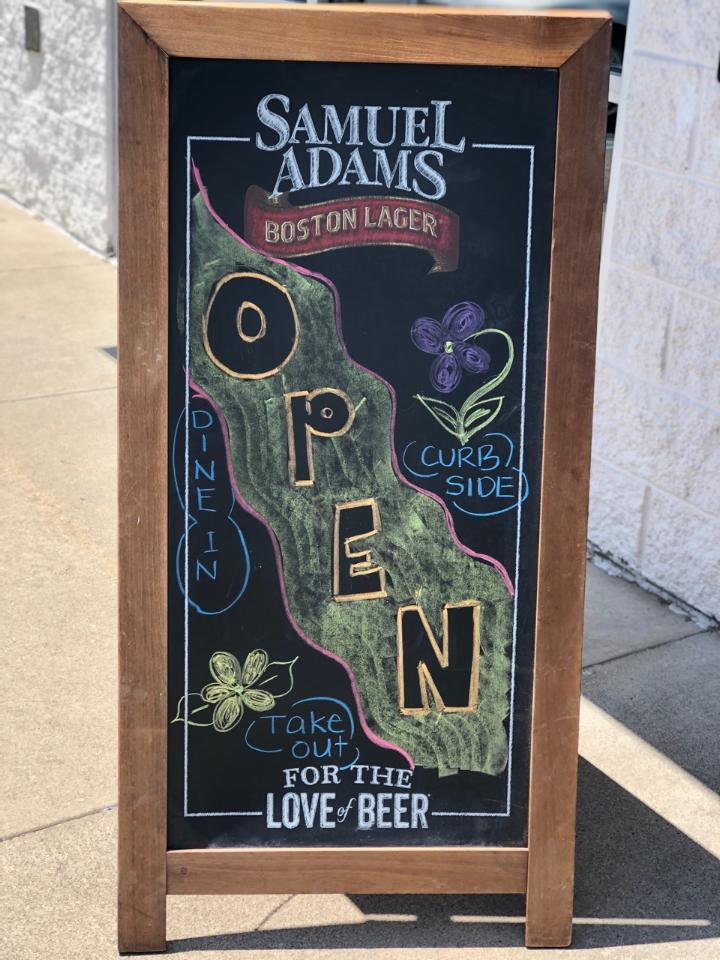 SAMUEL
ADAMS
BOSTON LAGER
OPEN
DINE IN
CURB
SIDE
Take
out
FOR THE
LOVE of BEER